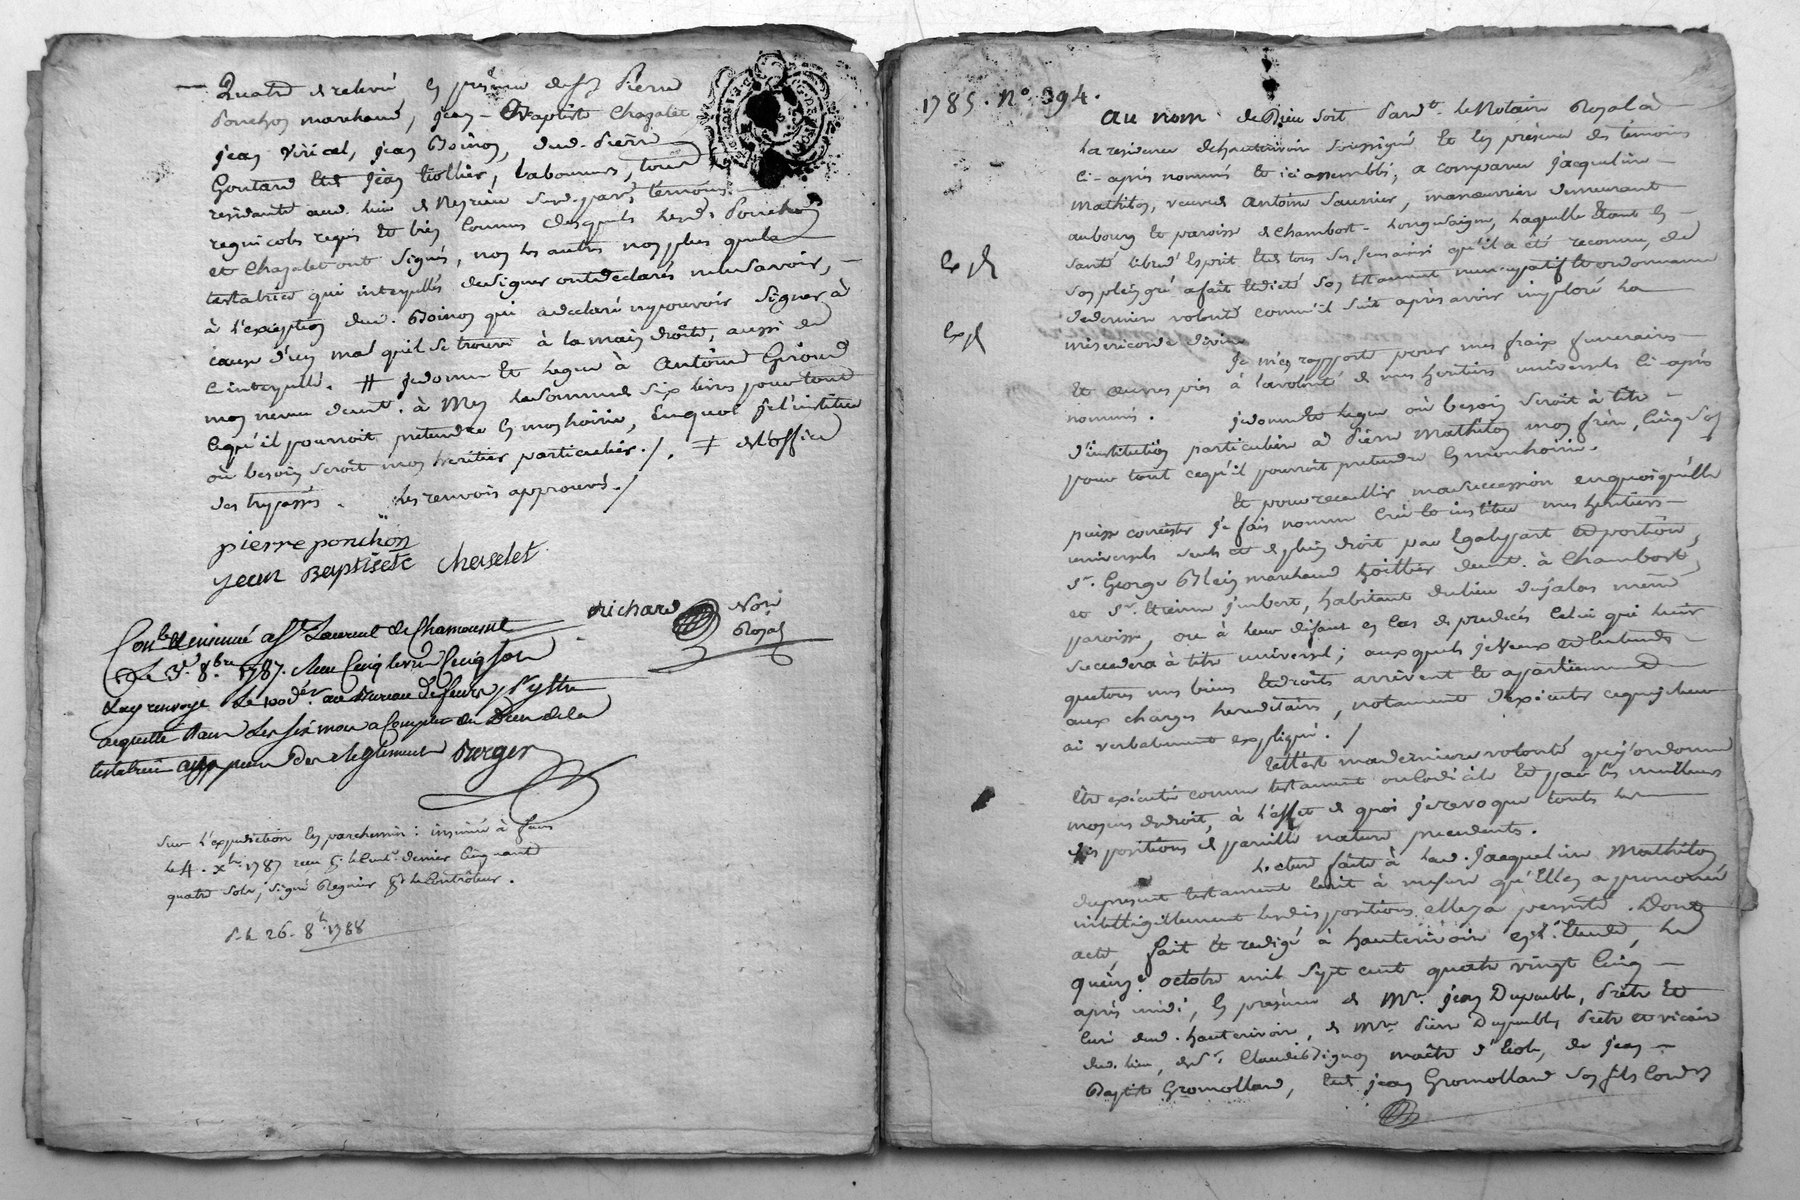 Quatre et relevé en présence de sr Pierre
Ponchon marchand, Jean-Baptiste Chazalet
Jean Viricel, Jean Boinon, dud. Pierre
Goutard et de Jean Tiollier, laboureurs, tous
residants aud. lieu de Neyrieu susd. par. témoins
regnicoles requis et bien connus desquels lesds Ponchon
et Chazalet ont signés, non les autres non plus que la
testatrice qui interpellés de signer ont déclarés ne le savoir,
à l'exception dud. Boinon qui a déclaré ny pouvoir signer à
cause d'un mal qu'il se trouve à la main droite, aussi de
ce interpellé. # je donne et legue à Antoine Giroud
mon neveu demt. à Mey la somme de six livres pour tout
ce qu'il pourroit prétendre en mon hoirie, en quoi je l'institue
où besoin seroit mon héritier particulier ./. # et l'office
des trepassés. les renvois approuvés ./
pierre ponchon
jean Baptiste Chaselet
Richard Nore
Royal
Conlé et insinué a St Laurent de Chamousset
Le 3e 8bre 1787. Reçu cinq livres cinq sols
Lay renvoyé Le 100e der au Bureau de feurs pr y être
acquitté dans Les six mois a Compter du Décès de la
testatrice aux peines Des reglements Berger
Sur l'expédition en parchemin : insinué à feurs
le 4. Xbre 1787 reçu
quatre sols, signé Regnier le Contrôleur.
26. 8b. 1788
1785. N° 394.
Au nom de Dieu soit Pardt. le Notaire Royal à
la residence d'hauterivoir soussigné et en présence des témoins
ci-après nommés et ici assemblés, a comparu Jacqueline
Mathilon, veuve d'Antoine Saunier, manœuvrier demeurant
au bourg et paroisse de Chambost-Longuesaigne, laquelle étant en
santé libre d'esprit et de tous ses sens ainsi qu'il a été reconnu, de
son plein gré a fait et dicté son testament nuncupatif et ordonnance
de derniere volonté comm'il suit après avoir imploré la
misericorde divine
Je m'en rapporte pour mes fraix funeraires
et œuvres pies à la volonté de mes heritiers universels ci-après
nommés. Je donne et legue où besoin seroit à titre
d'institution particulière à Pierre Mathilon mon frère, cinq sols
pour tout ce qu'il pourroit pretendre en mon hoirie.
Et pour recueillir ma succession en quoi qu'elle
puisse consister je fais nomme crée et institue mes heritiers
universels seuls et de plein droit par egale part et portion,
sr. George Blein marchand toillier demt. à Chambost,
et sr. Etienne Imbert, habitant du lieu du jalas même
paroisse, ou à leur defaut en cas de predécés celui qui leur
succedera à titre universel; auxquels je veux et entends
que tous mes biens et droits arrivent et apartiennent
aux charges hereditaires, notament d'executer ce que je leur
ai verbalement expliqué. /
Telle est ma derniere volonté que j'ordonne
être exécutée comme testament ou codicile et par les meilleurs
moyens de droit, à l'effet de quoi je revoque toutes les
dispositions de pareille nature precedentes.
Lecture faite à lad. Jacqueline Mathilon
du present testament écrit à mesure qu'elle en a prononcé
intelligiblement les dispositions elle y a persisté. Dont
acte, fait et redigé à hauterivoir en l'étude, le
quinze octobre mil sept cent quatre vingt cinq
après midi, en presence de Mre. Jean Dupuble, Prêtre et
curé dud. hauterivoir, de Mre. Pierre Dupuble, Prêtre et vicaire
dud. lieu, de sr. Claude Bignon maître d'école, de Jean
Baptiste Gromolland, et de Jean Gromolland son fils cordr